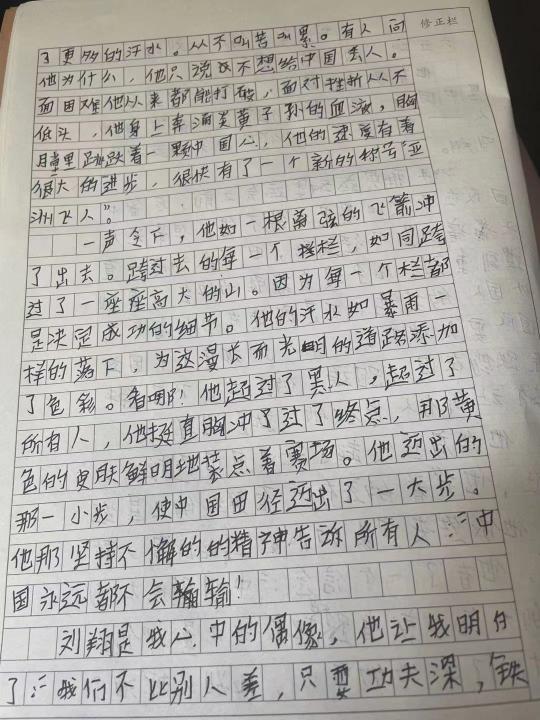 修正栏
了更多的汗水。从不叫苦叫累。有人问
他为什么，他只说我不想给中国丢人。
面困难他从来都能打破，面对挫折从不
低头，他身上奔涌炎黄子孙的血液，胸
膛里跳跃着一颗中国心，他的速度有着
很大的进步，很快有了一个新的称号“亚
洲飞人”。
一声令下，他如一根离弦的飞箭冲
了出去。跨过去的每一个栏栏，如同跨
过了一座座高大的山。因为每一个栏都
是决定成功的细节。他的汗水如暴雨一
样的落下，为这漫长而光明的道路添加
了色彩。看哪！他超过了黑人，超过了
所有人，他挺直胸冲了过了终点，那黄
色的皮肤鲜明地装点着赛场。他迈出的
那一小步，使中国田径迈出了一大步。
他那坚持不懈的的精神告诉所有人：“中
国永远都不会输输！
刘翔是我心中的偶像，他让我明白
了：“我们不比别人差，只要功夫深，铁